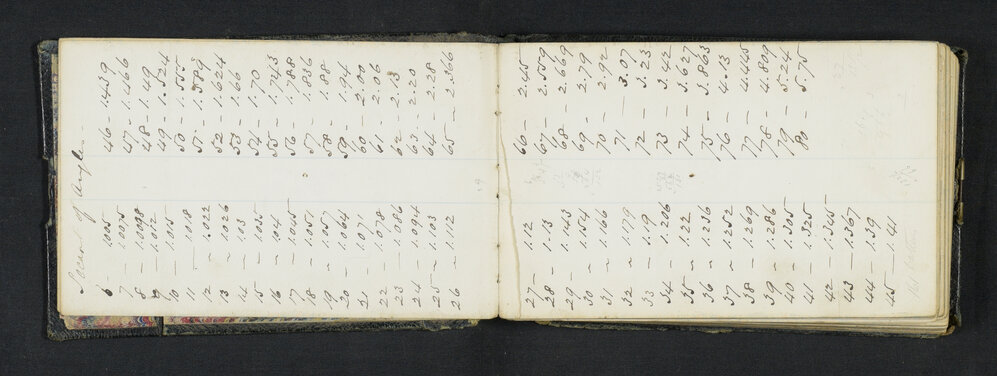 Secant of Angles
6 - 1005
7 - 1.0075
8 - 1.0098
9 - 1.012
10 - 1.015
11 - 1.018
12 - 1.022
13 - 1.026
14 - 1.03
15 - 1.035
16 - 1.04
17 - 1.045
18 - 1.051
19 - 1.057
20 - 1.064
21 - 1.071
22 - 1.078
23 - 1.086
24 - 1.094
25 - 1.103
26 - 1.112
46 - 1.439
47 - 1.466
48 - 1.49
49 - 1.524
50 - 1.555
51 - 1.589
52 - 1.624
53 - 1.66
54 - 1.70
55 - 1.743
56 - 1.788
57 - 1.836
58 - 1.88
59 - 1.94
60 - 2.00
61 - 2.06
62 - 2.13
63 - 2.20
64 - 2.28
65 - 2.366
27 - 1.12
28 - 1.13
29 - 1.143
30 - 1.154
31 - 1.166
32 - 1.179
33 - 1.19
34 - 1.206
35 - 1.22
36 - 1.236
37 - 1.252
38 - 1.269
39 - 1.286
40 - 1.305
41 - 1.325
42 - 1.345
43 - 1.367
44 - 1.39
45 - 1.41
66 - 2.45
67 - 2.559
68 - 2.669
69 - 2.79
70 - 2.92
71 - 3.07
72 - 3.23
73 - 3.42
74 - 3.627
75 - 3.863
76 - 4.13
77 - 4.445
78 - 4.809
79 - 5.24
80 - 5.75